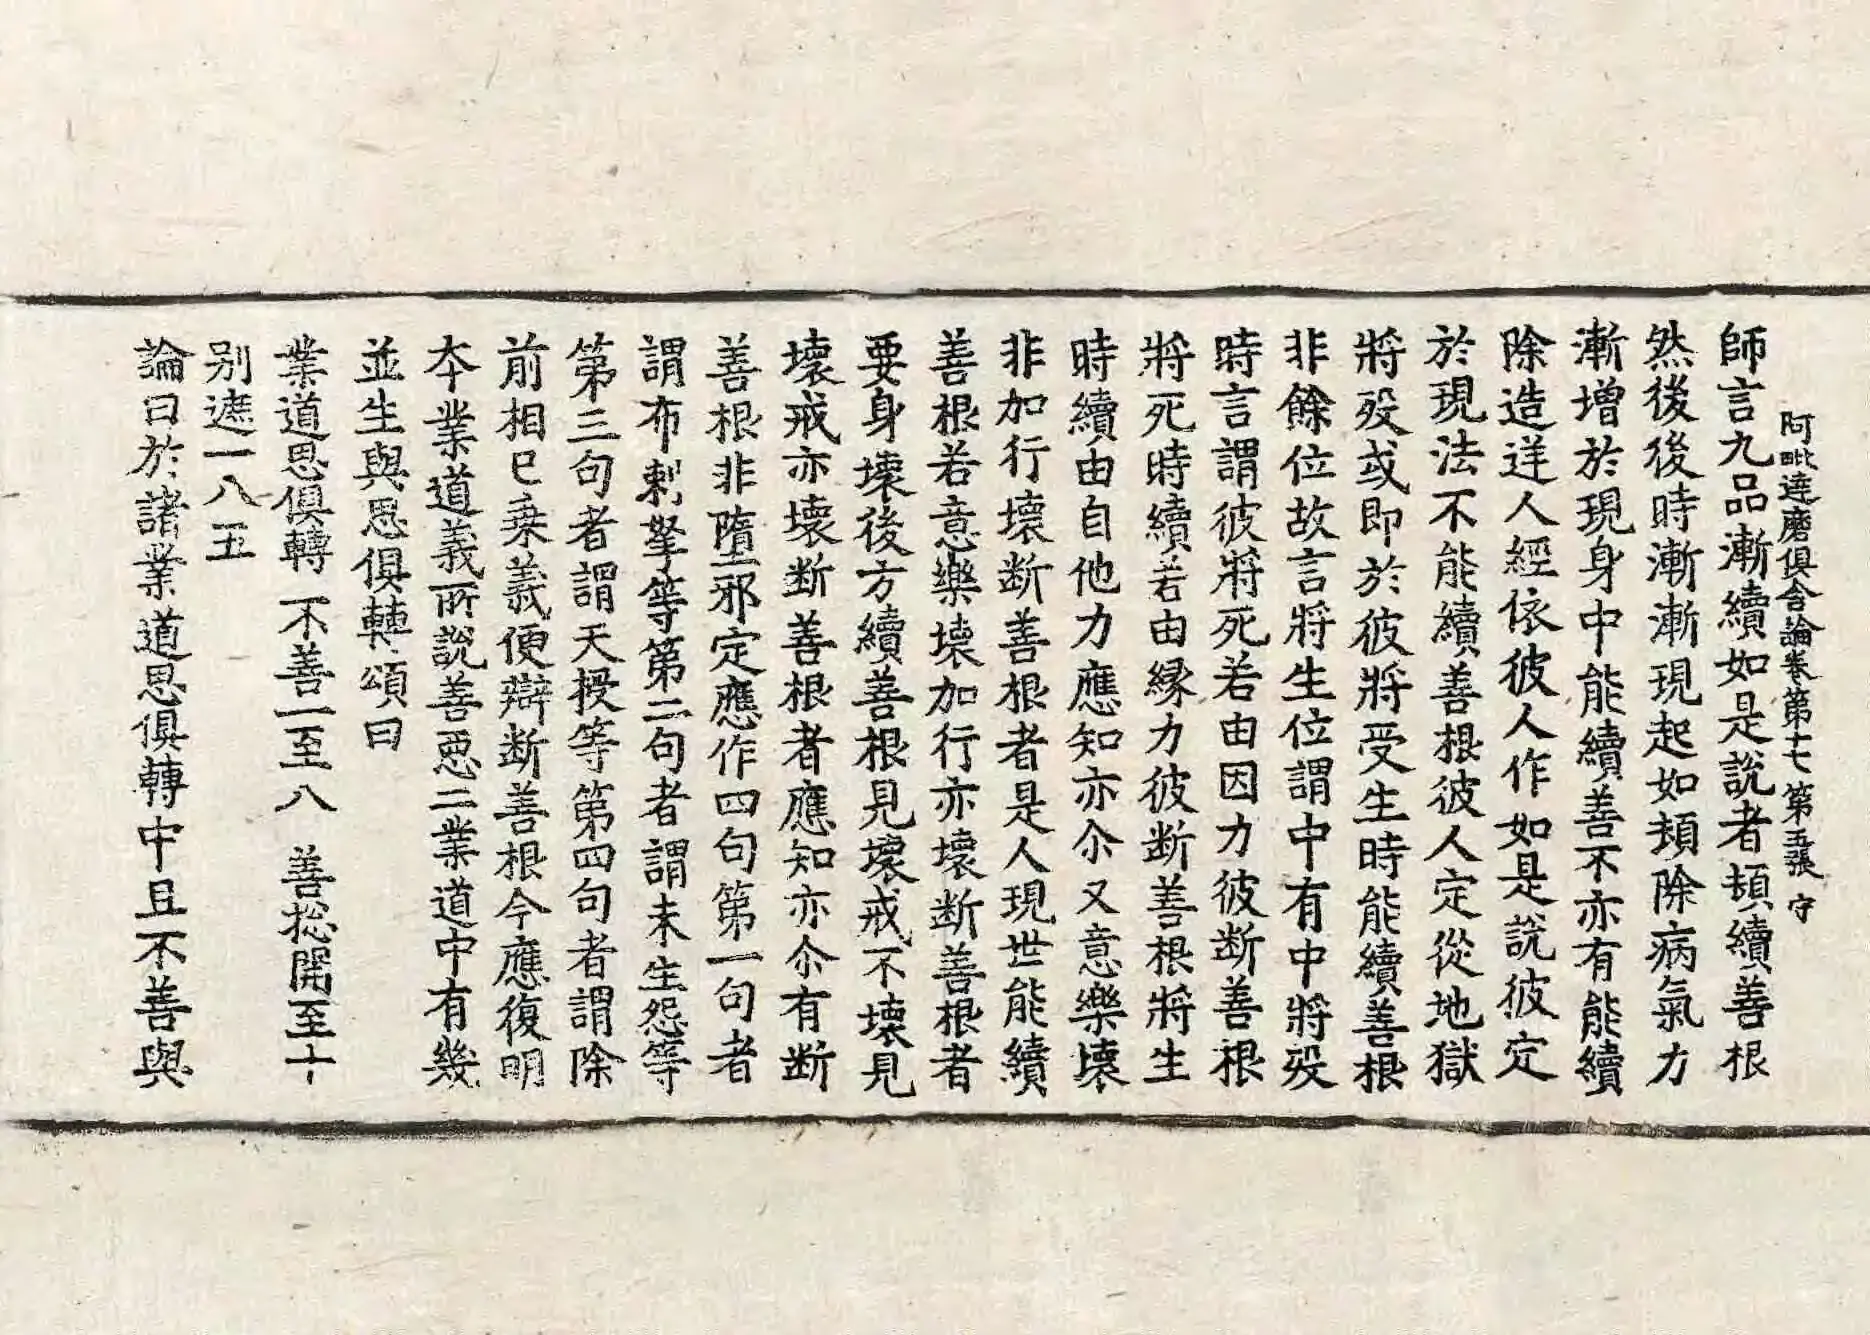 阿毗達磨俱舍論卷第十七 第五張 守
師言九品漸續如是說者頓續善根
然後後時漸漸現起如頓除病氣力
漸增於現身中能續善不亦有能續
除造逆人經依彼人作如是說彼定
於現法不能續善根彼人定從地獄
將歿或即於彼將受生時能續善根
非餘位故言將生位謂中有中將歿
時言謂彼將死若由因力彼斷善根
將死時續若由緣力彼斷善根將生
時續由自他力應知亦尒又意樂壞
非加行壞斷善根者是人現世能續
善根若意樂壞加行亦壞斷善根者
要身壞後方續善根見壞戒不壞見
壞戒亦壞斷善根者應知亦尒有斷
善根非墮邪定應作四句第一句者
謂布剌拏等第二句者謂未生怨等
第三句者謂天授等第四句者謂除
前相已乘義便辯斷善根今應復明
本業道義所說善惡二業道中有幾
並生與思俱轉頌曰
業道思俱轉 不善一至八 善捴開至十
别遮一八五
論曰於諸業道思俱轉中且不善與